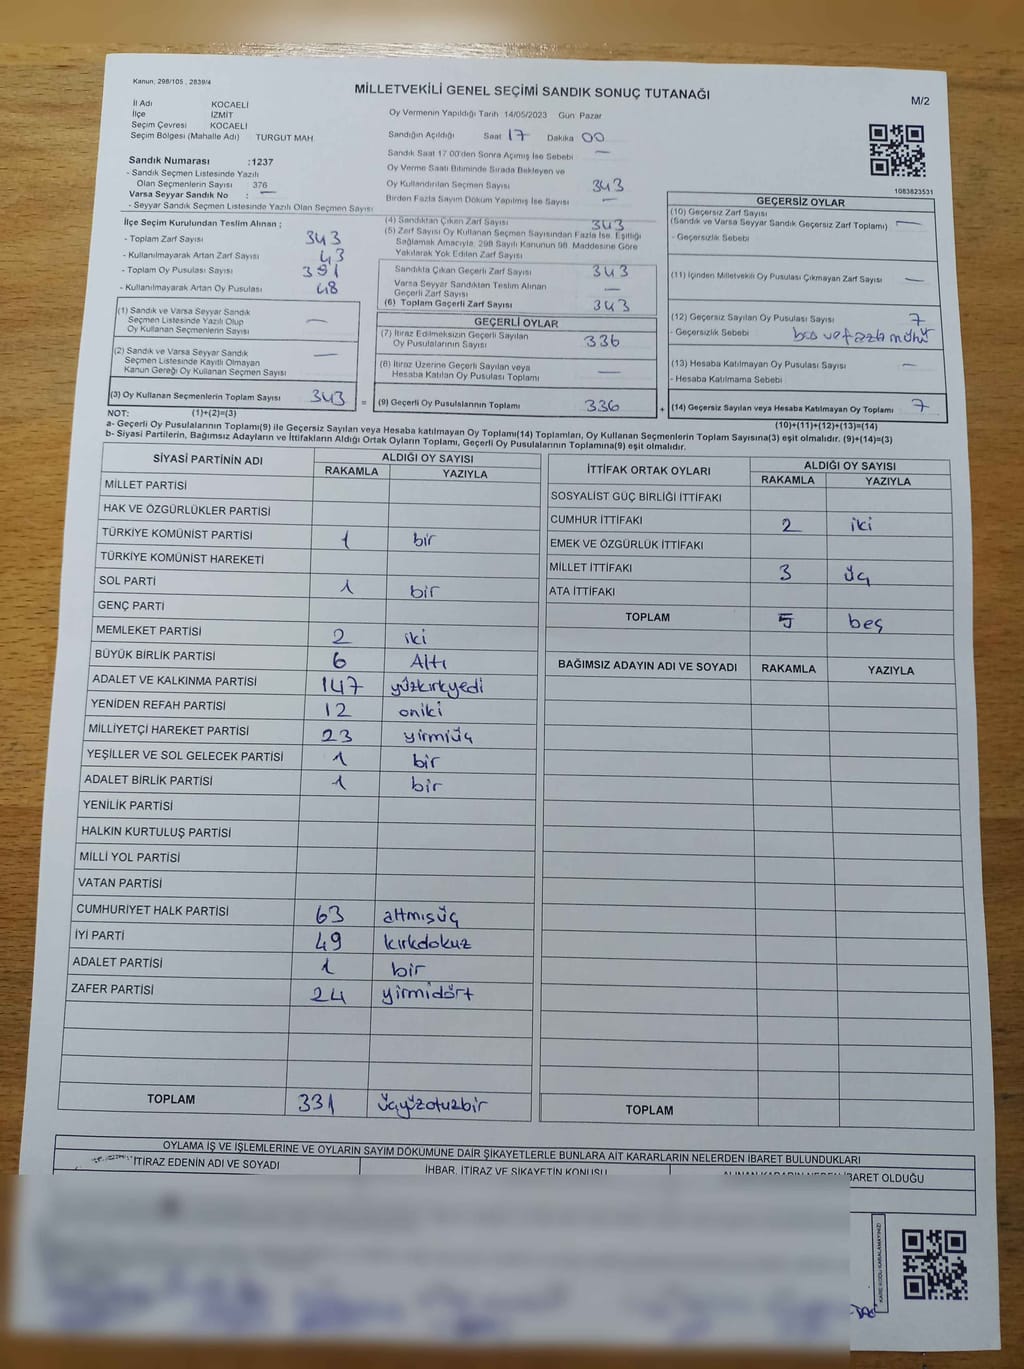 Kanun, 298/105 , 2839/4
MİLLETVEKİLİ GENEL SEÇİMİ SANDIK SONUÇ TUTANAĞI
M/2
İl Adı KOCAELİ
İlçe İZMİT
Seçim Çevresi KOCAELİ
Seçim Bölgesi (Mahalle Adı) TURGUT MAH
Sandık Numarası :1237
- Sandık Seçmen Listesinde Yazılı
Olan Seçmenlerin Sayısı 376
Varsa Seyyar Sandık No : —
- Seyyar Sandık Seçmen Listesinde Yazılı Olan Seçmen Sayısı
Oy Vermenin Yapıldığı Tarih 14/05/2023 Gün Pazar
Sandığın Açıldığı Saat 17 Dakika 00
Sandık Saat 17 00'den Sonra Açımış İse Sebebi —
Oy Verme Saati Bitiminde Sırada Bekleyen ve
Oy Kullandırılan Seçmen Sayısı 343
Birden Fazla Sayım Döküm Yapılmış İse Sayısı —
1083823531
İlçe Seçim Kurulundan Teslim Alınan ;
- Toplam Zarf Sayısı 343
- Kullanılmayarak Artan Zarf Sayısı 43
- Toplam Oy Pusulası Sayısı 391
- Kullanılmayarak Artan Oy Pusulası 48
(1) Sandık ve Varsa Seyyar Sandık
Seçmen Listesinde Yazılı Olup
Oy Kullanan Seçmenlerin Sayısı —
(2) Sandık ve Varsa Seyyar Sandık
Seçmen Listesinde Kayıtlı Olmayan
Kanun Gereği Oy Kullanan Seçmen Sayısı —
(3) Oy Kullanan Seçmenlerin Toplam Sayısı 343 =
(4) Sandıktan Çıkan Zarf Sayısı 343
(5) Zarf Sayısı Oy Kullanan Seçmen Sayısından Fazla İse, Eşitliği
Sağlamak Amacıyla, 298 Sayılı Kanunun 98. Maddesine Göre
Yakılarak Yok Edilen Zarf Sayısı
Sandıkta Çıkan Geçerli Zarf Sayısı 343
Varsa Seyyar Sandıktan Teslim Alınan
Geçerli Zarf Sayısı —
(6) Toplam Geçerli Zarf Sayısı 343
GEÇERLİ OYLAR
(7) İtiraz Edilmeksizin Geçerli Sayılan
Oy Pusulalarının Sayısı 336
(8) İtiraz Üzerine Geçerli Sayılan veya
Hesaba Katılan Oy Pusulası Toplamı —
(9) Geçerli Oy Pusulalarının Toplamı 336 +
GEÇERSİZ OYLAR
(10) Geçersiz Zarf Sayısı
(Sandık ve Varsa Seyyar Sandık Geçersiz Zarf Toplamı) —
- Geçersizlik Sebebi
(11) İçinden Milletvekili Oy Pusulası Çıkmayan Zarf Sayısı —
(12) Geçersiz Sayılan Oy Pusulası Sayısı 7
- Geçersizlik Sebebi boş ve fazla mühür
(13) Hesaba Katılmayan Oy Pusulası Sayısı —
- Hesaba Katılmama Sebebi
(14) Geçersiz Sayılan veya Hesaba Katılmayan Oy Toplamı 7
NOT: (1)+(2)=(3)
(10)+(11)+(12)+(13)=(14)
a- Geçerli Oy Pusulalarının Toplamı(9) ile Geçersiz Sayılan veya Hesaba katılmayan Oy Toplamı(14) Toplamları, Oy Kullanan Seçmenlerin Toplam Sayısına(3) eşit olmalıdır. (9)+(14)=(3)
b- Siyasi Partilerin, Bağımsız Adayların ve İttifakların Aldığı Ortak Oyların Toplamı, Geçerli Oy Pusulalarının Toplamına(9) eşit olmalıdır.
SİYASİ PARTİNİN ADI ALDIĞI OY SAYISI
RAKAMLA YAZIYLA
MİLLET PARTİSİ
HAK VE ÖZGÜRLÜKLER PARTİSİ
TÜRKİYE KOMÜNİST PARTİSİ 1 bir
TÜRKİYE KOMÜNİST HAREKETİ
SOL PARTİ 1 bir
GENÇ PARTİ
MEMLEKET PARTİSİ 2 iki
BÜYÜK BİRLİK PARTİSİ 6 Altı
ADALET VE KALKINMA PARTİSİ 147 yüzkırkyedi
YENİDEN REFAH PARTİSİ 12 oniki
MİLLİYETÇİ HAREKET PARTİSİ 23 yirmiüç
YEŞİLLER VE SOL GELECEK PARTİSİ 1 bir
ADALET BİRLİK PARTİSİ 1 bir
YENİLİK PARTİSİ
HALKIN KURTULUŞ PARTİSİ
MİLLİ YOL PARTİSİ
VATAN PARTİSİ
CUMHURİYET HALK PARTİSİ 63 altmışüç
İYİ PARTİ 49 kırkdokuz
ADALET PARTİSİ 1 bir
ZAFER PARTİSİ 24 yirmidört
TOPLAM 331 üçyüzotuzbir
İTTİFAK ORTAK OYLARI ALDIĞI OY SAYISI
RAKAMLA YAZIYLA
SOSYALİST GÜÇ BİRLİĞİ İTTİFAKI
CUMHUR İTTİFAKI 2 iki
EMEK VE ÖZGÜRLÜK İTTİFAKI
MİLLET İTTİFAKI 3 üç
ATA İTTİFAKI
TOPLAM 5 beş
BAĞIMSIZ ADAYIN ADI VE SOYADI RAKAMLA YAZIYLA
TOPLAM
OYLAMA İŞ VE İŞLEMLERİNE VE OYLARIN SAYIM DÖKÜMÜNE DAİR ŞİKAYETLERLE BUNLARA AİT KARARLARIN NELERDEN İBARET BULUNDUKLARI
İTİRAZ EDENİN ADI VE SOYADI
İHBAR, İTİRAZ VE ŞİKAYETİN KONUSU
ALINAN KARARIN NEDEN İBARET OLDUĞU
KARE KODU KARALAMAYINIZ!